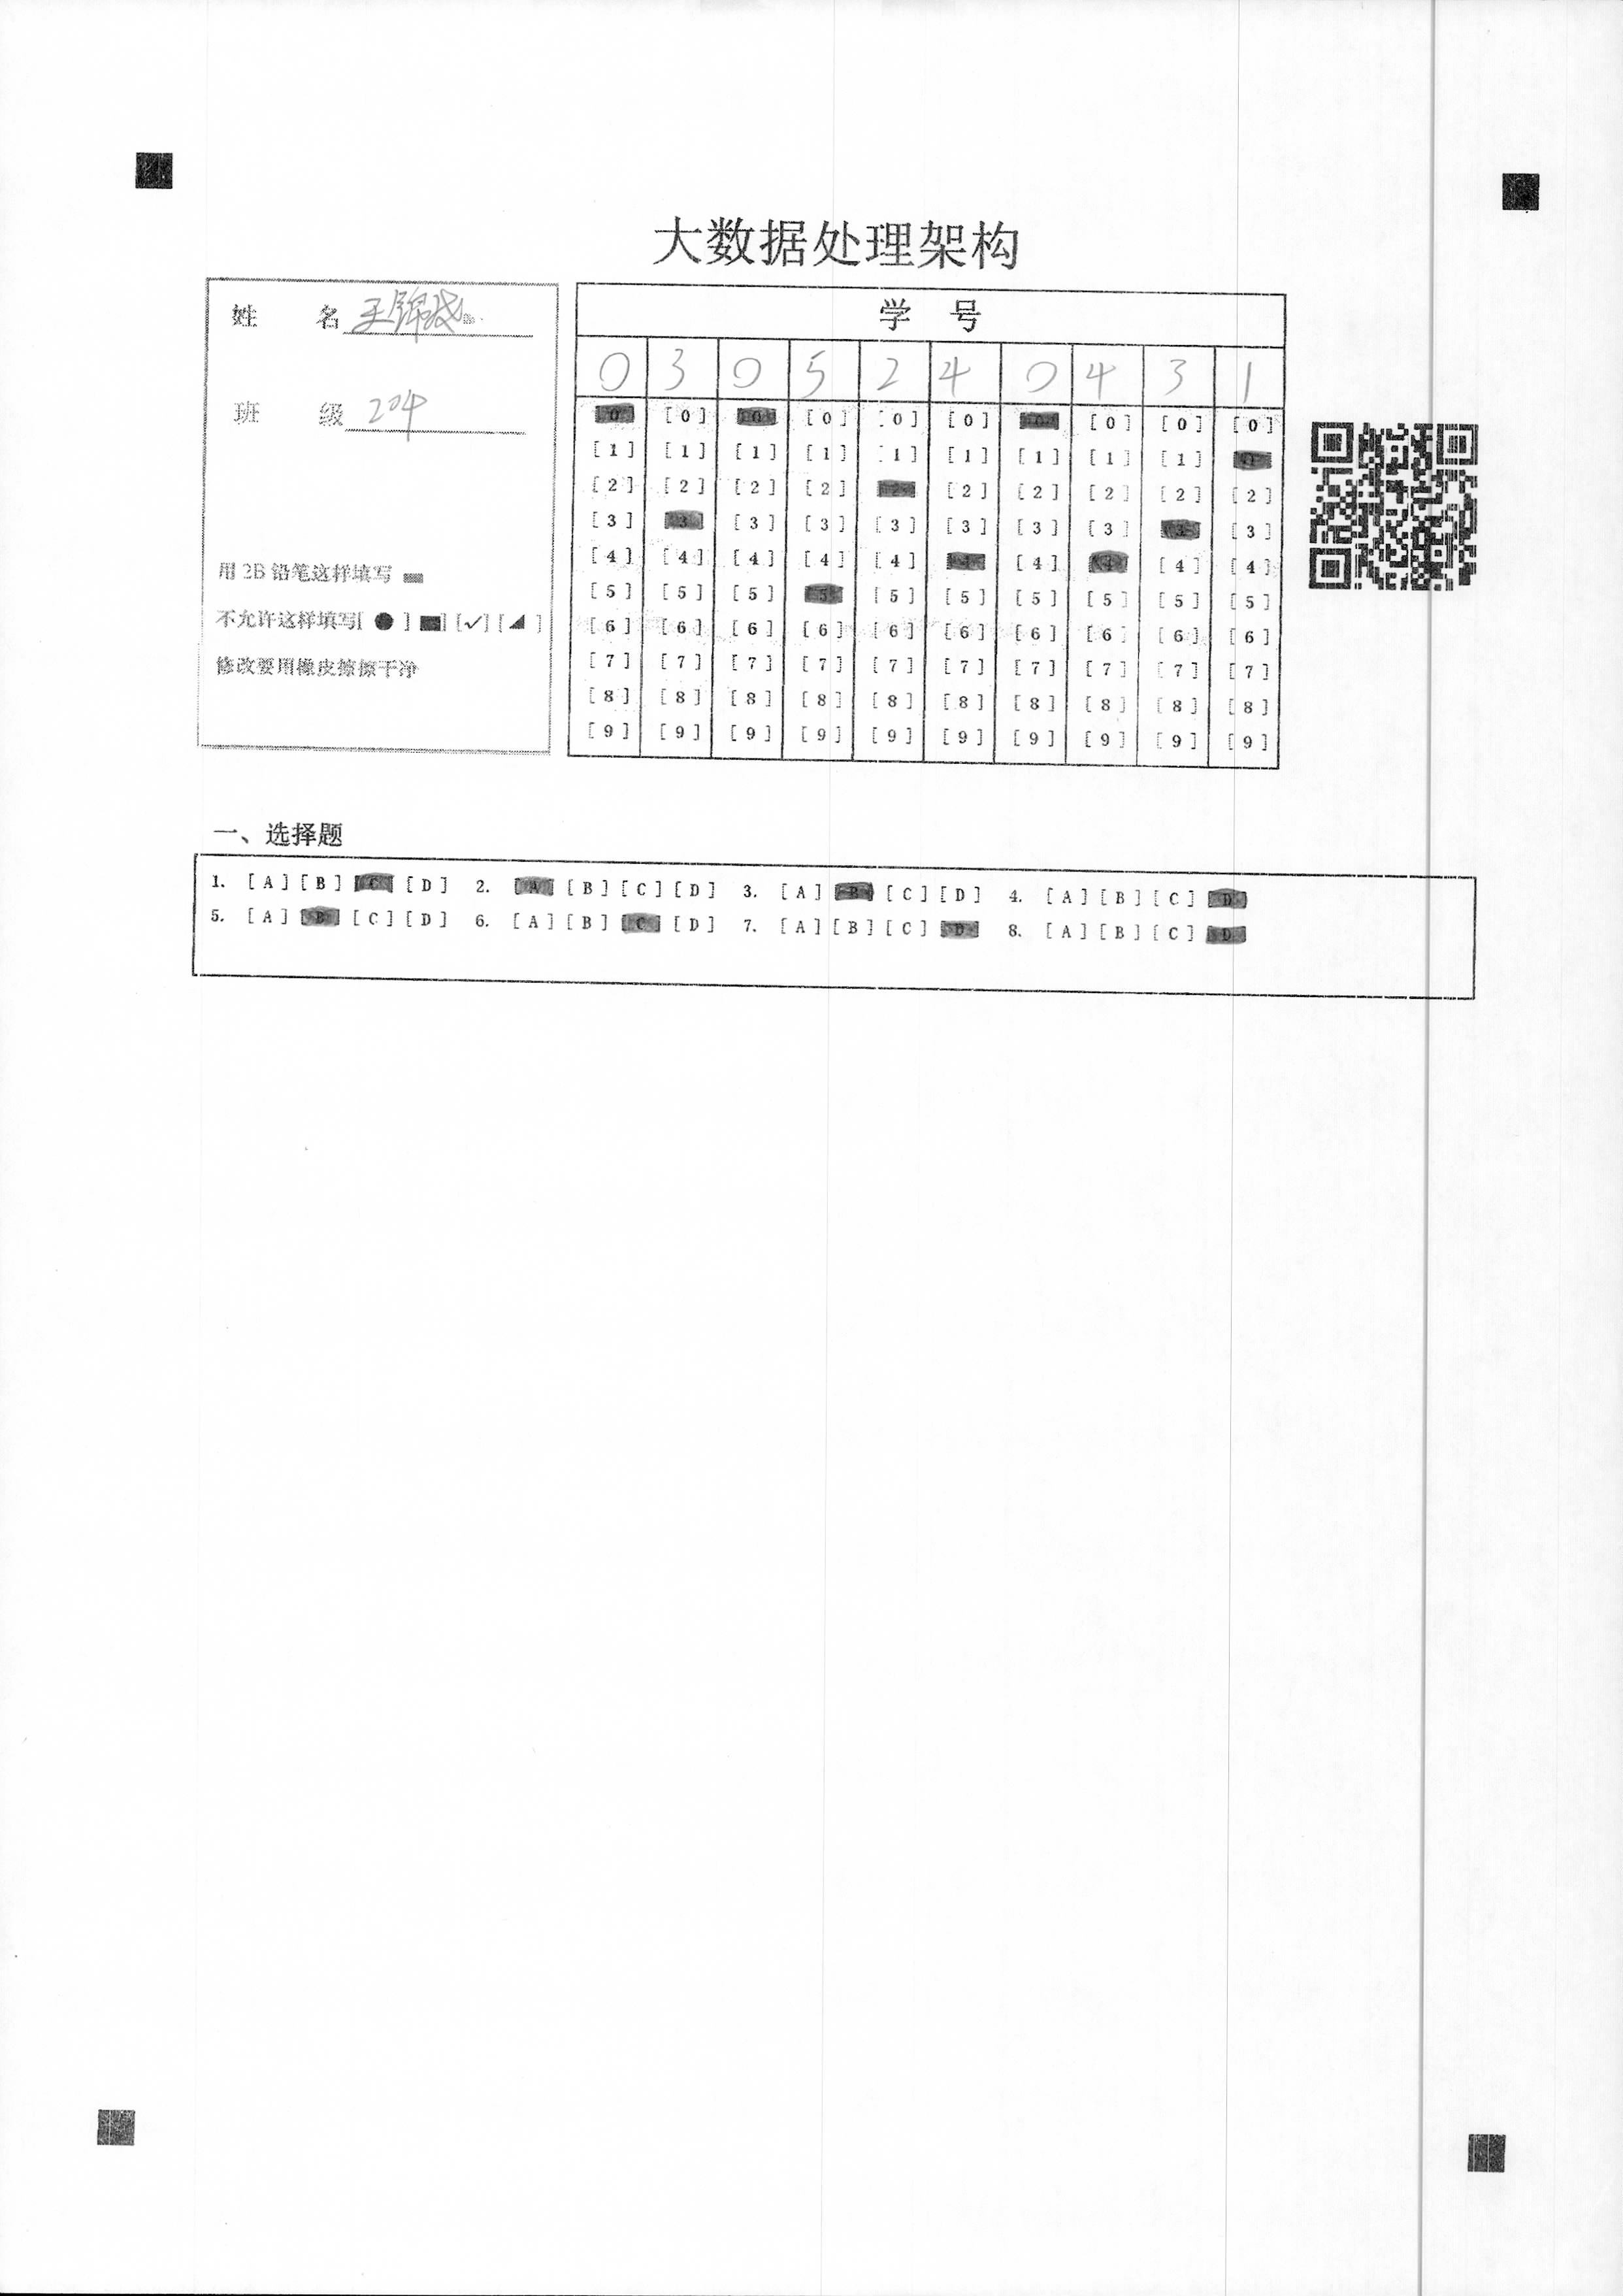 大数据处理架构
姓 名 王锦
班 级 204
用 2B 铅笔这样填写
不允许这样填写[ ● ] [■] [✓] [◢ ]
修改要用橡皮擦擦干净
学 号
0 3 0 5 2 4 0 4 3 1
[0] [0] [0] [0] [0] [0] [0] [0] [0] [0]
[1] [1] [1] [1] [1] [1] [1] [1] [1] [1]
[2] [2] [2] [2] [2] [2] [2] [2] [2] [2]
[3] [3] [3] [3] [3] [3] [3] [3] [3] [3]
[4] [4] [4] [4] [4] [4] [4] [4] [4] [4]
[5] [5] [5] [5] [5] [5] [5] [5] [5] [5]
[6] [6] [6] [6] [6] [6] [6] [6] [6] [6]
[7] [7] [7] [7] [7] [7] [7] [7] [7] [7]
[8] [8] [8] [8] [8] [8] [8] [8] [8] [8]
[9] [9] [9] [9] [9] [9] [9] [9] [9] [9]
一、选择题
1. [A] [B] [C] [D] 2. [A] [B] [C] [D] 3. [A] [B] [C] [D] 4. [A] [B] [C] [D]
5. [A] [B] [C] [D] 6. [A] [B] [C] [D] 7. [A] [B] [C] [D] 8. [A] [B] [C] [D]